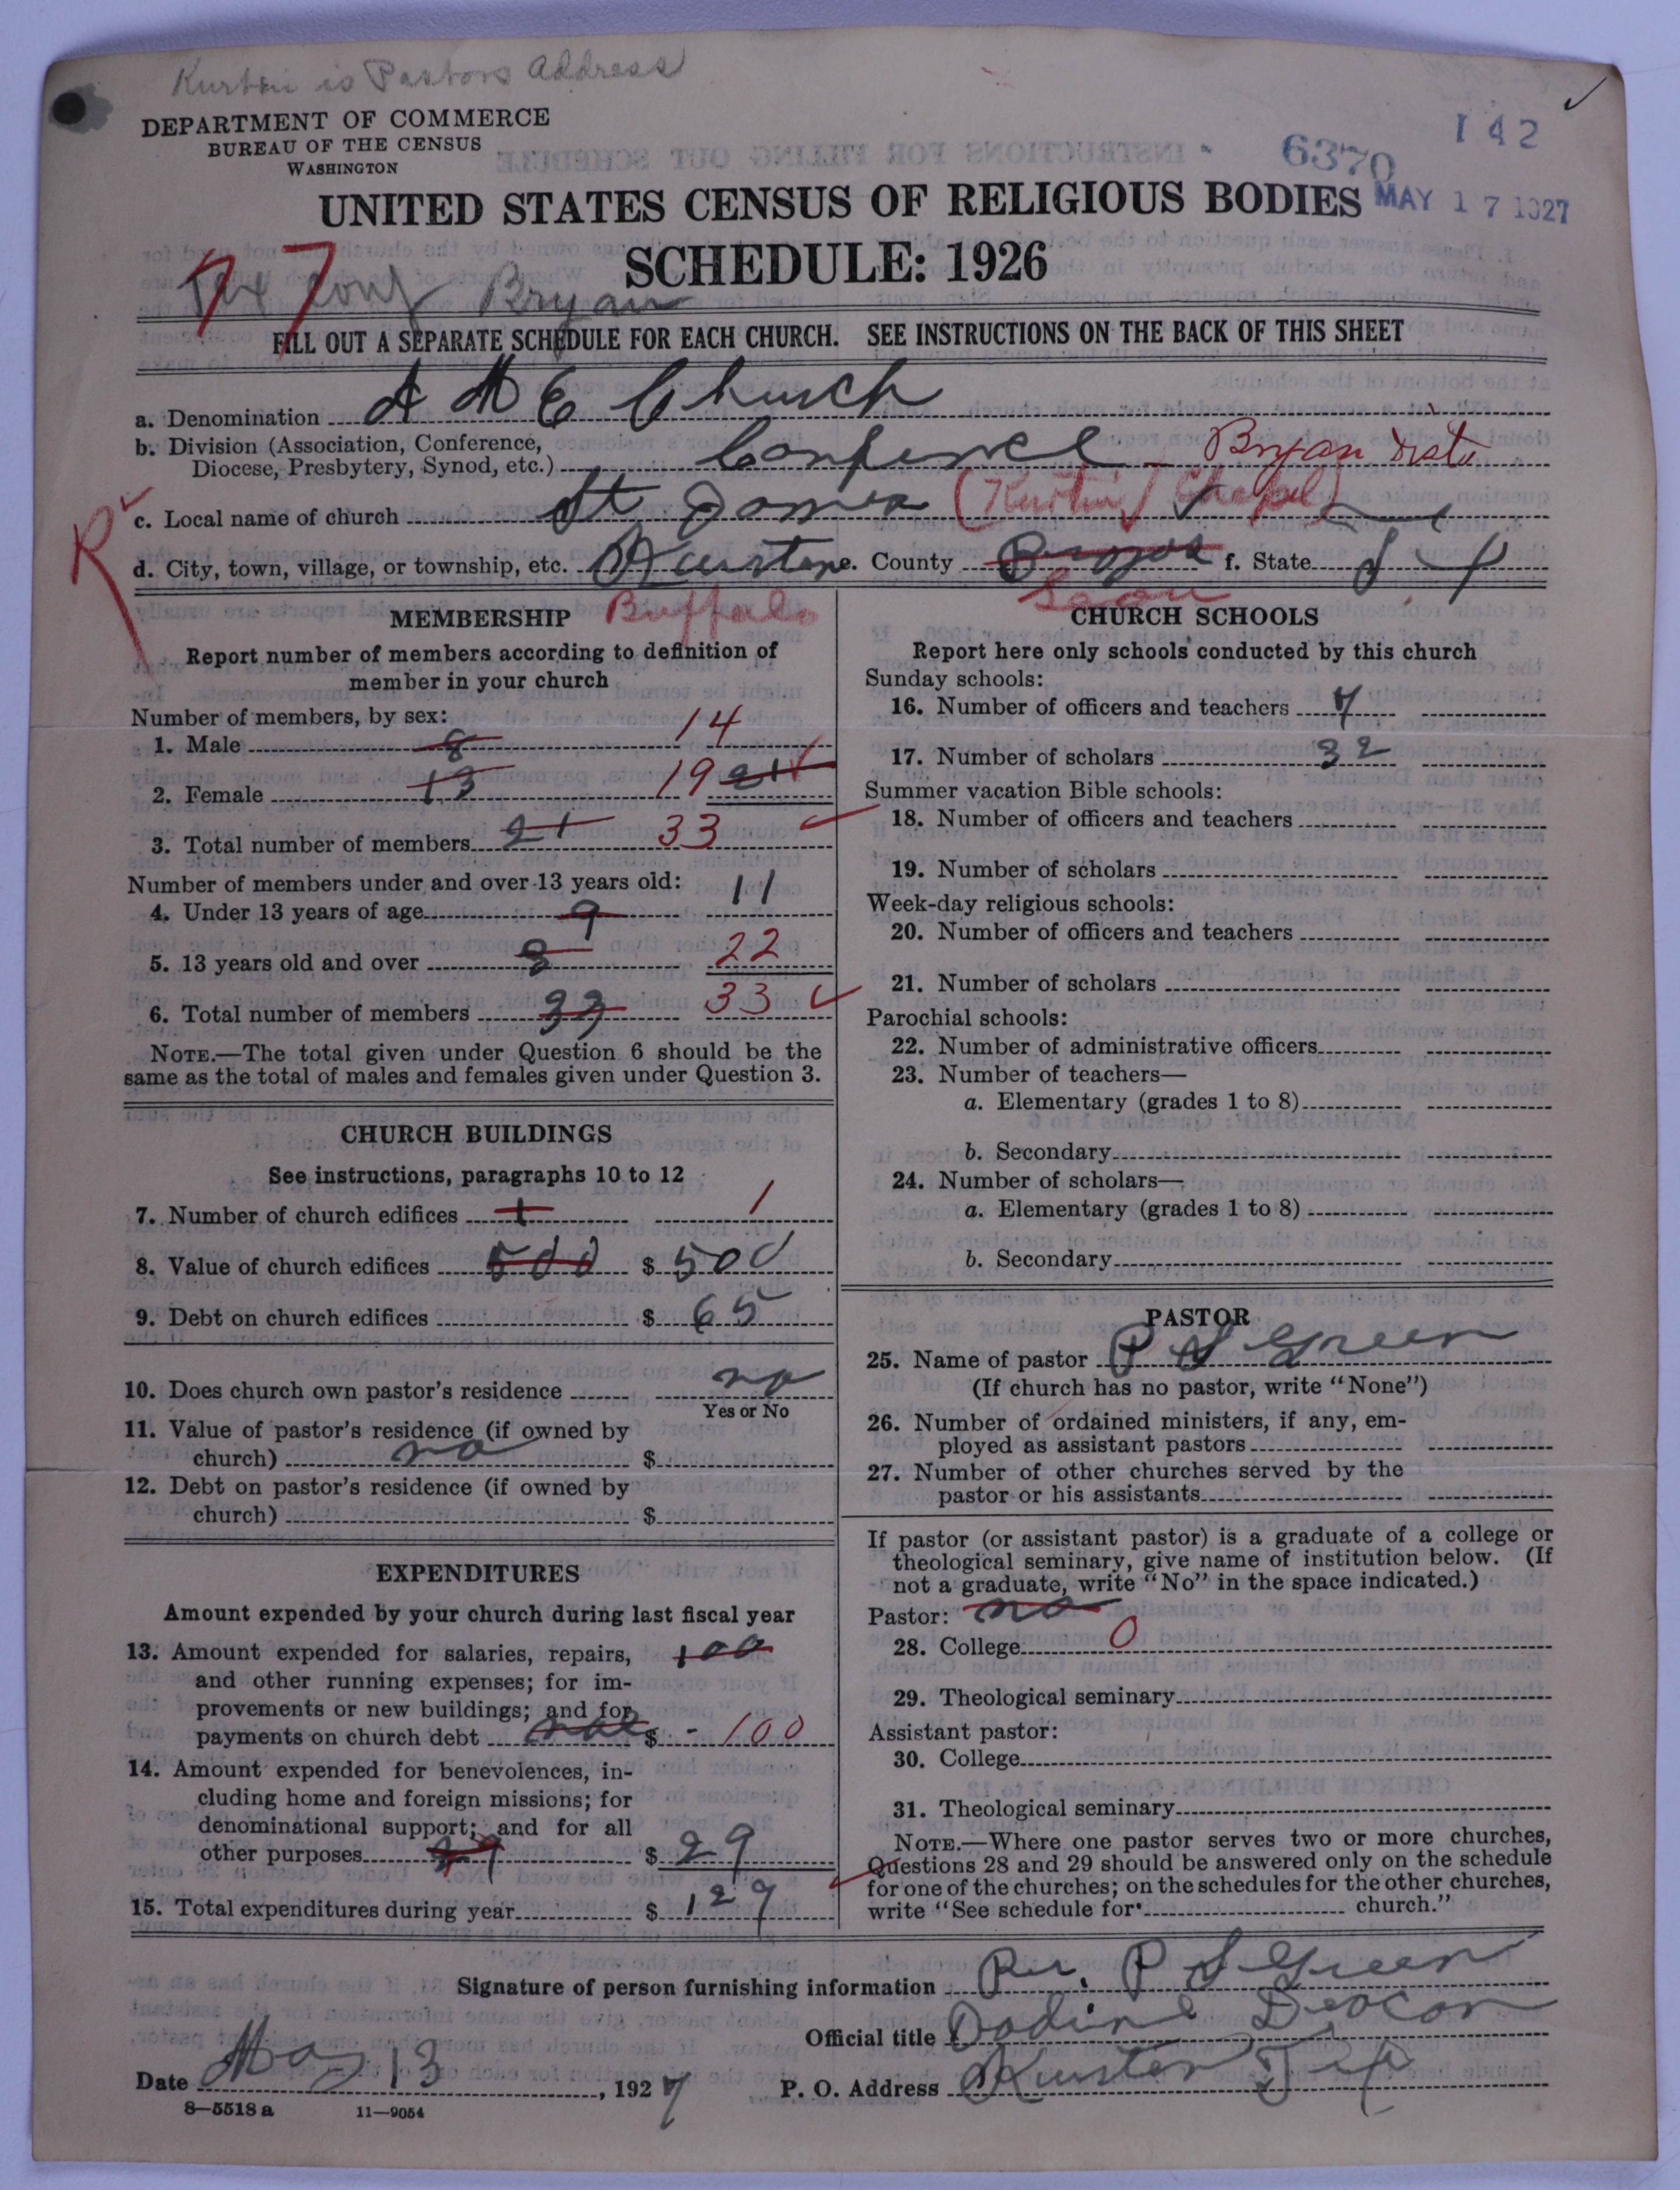 Kurten is Pastors Address
DEPARTMENT OF COMMERCE
BUREAU OF THE CENSUS
WASHINGTON
142
6370
MAY 17 1927
UNITED STATES CENSUS OF RELIGIOUS BODIES
SCHEDULE: 1926
77
Tex Conf Bryan
FILL OUT A SEPARATE SCHEDULE FOR EACH CHURCH. SEE INSTRUCTIONS ON THE BACK OF THIS SHEET
a. Denomination A M E Church
b. Division (Association, Conference,
Diocese, Presbytery, Synod, etc.) Conference Bryan Dist
R
c. Local name of church St James (Chapel)
d. City, town, village, or township, etc. Kursten e. County f. State Tex
Buffalo Leon
MEMBERSHIP
Report number of members according to definition of
member in your church
Number of members, by sex:
1. Male 8 14
2. Female 13 19 21
3. Total number of members 21 33
Number of members under and over 13 years old:
4. Under 13 years of age 9 11
5. 13 years old and over 8 22
6. Total number of members 33 33
NOTE.—The total given under Question 6 should be the
same as the total of males and females given under Question 3.
CHURCH BUILDINGS
See instructions, paragraphs 10 to 12
7. Number of church edifices 1 1
8. Value of church edifices 500 $ 500
9. Debt on church edifices $ 65
10. Does church own pastor's residence no
Yes or No
11. Value of pastor's residence (if owned by
church) no $
12. Debt on pastor's residence (if owned by
church) $
EXPENDITURES
Amount expended by your church during last fiscal year
13. Amount expended for salaries, repairs, 100
and other running expenses; for im-
provements or new buildings; and for
payments on church debt $ - 100
14. Amount expended for benevolences, in-
cluding home and foreign missions; for
denominational support; and for all
other purposes 29 $ 29
15. Total expenditures during year $ 129
CHURCH SCHOOLS
Report here only schools conducted by this church
Sunday schools:
16. Number of officers and teachers 7
17. Number of scholars 32
Summer vacation Bible schools:
18. Number of officers and teachers
19. Number of scholars
Week-day religious schools:
20. Number of officers and teachers
21. Number of scholars
Parochial schools:
22. Number of administrative officers
23. Number of teachers—
a. Elementary (grades 1 to 8)
b. Secondary
24. Number of scholars—
a. Elementary (grades 1 to 8)
b. Secondary
PASTOR
25. Name of pastor P S Green
(If church has no pastor, write "None")
26. Number of ordained ministers, if any, em-
ployed as assistant pastors
27. Number of other churches served by the
pastor or his assistants
If pastor (or assistant pastor) is a graduate of a college or
theological seminary, give name of institution below. (If
not a graduate, write "No" in the space indicated.)
Pastor: no
28. College 0
29. Theological seminary
Assistant pastor:
30. College
31. Theological seminary
NOTE.—Where one pastor serves two or more churches,
Questions 28 and 29 should be answered only on the schedule
for one of the churches; on the schedules for the other churches,
write "See schedule for church."
Signature of person furnishing information Rev. P S Green
Official title Deacon
Date May 13, 1927 P. O. Address Kursten Tex
8—5518 a 11—9054